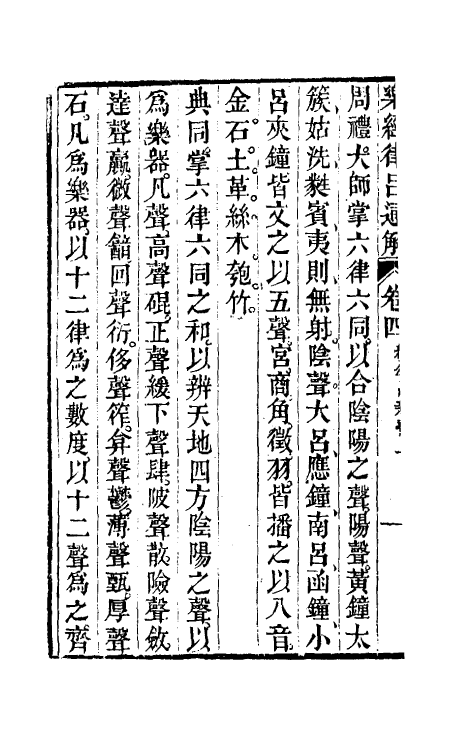 樂經律呂通解 卷四
周禮大師掌六律六同以合陰陽之聲陽聲黃鐘太
簇姑洗蕤賓夷則無射陰聲大呂應鐘南呂函鐘小
呂夾鐘皆文之以五聲宮商角徵羽皆播之以八音
金石土革絲木匏竹
典同掌六律六同之和以辨天地四方陰陽之聲以
為樂器凡聲高聲硍正聲緩下聲肆陂聲散險聲斂
達聲贏微聲韽回聲衍侈聲筰弇聲鬱薄聲甄厚聲
石凡為樂器以十二律為之數度以十二聲為之齊